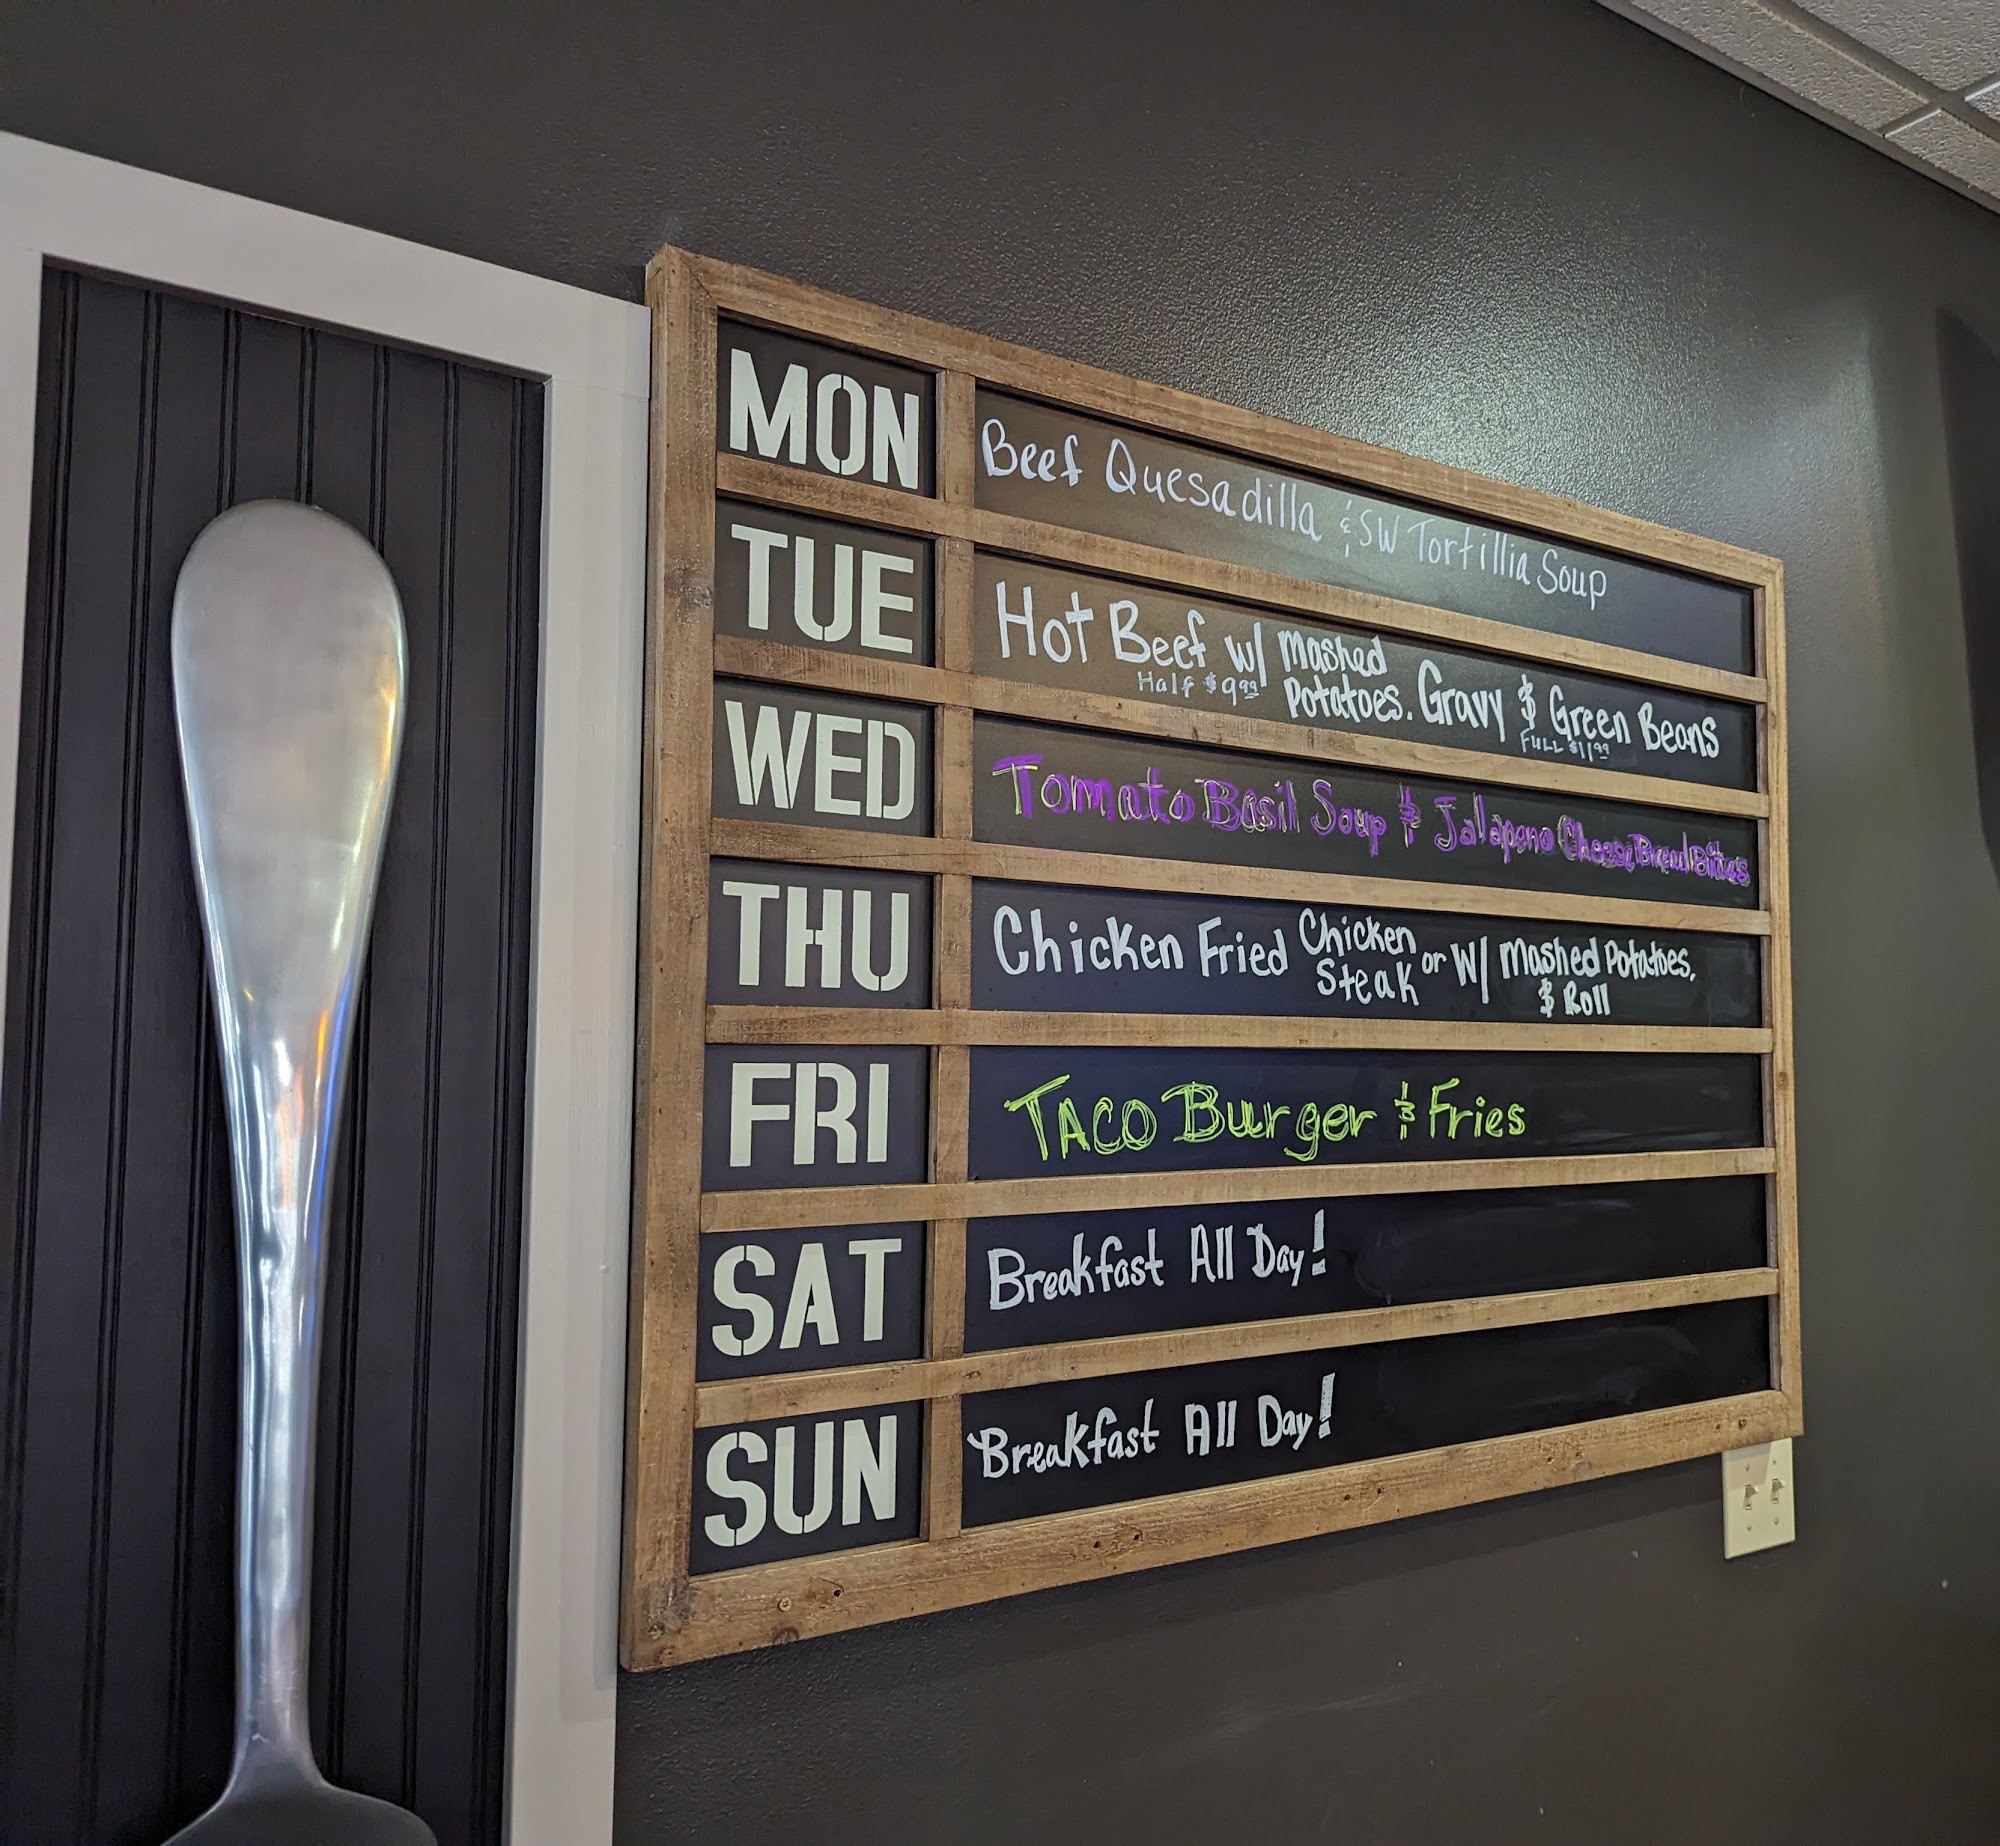 MON
Beef Quesadilla & SW Tortillia Soup
TUE
Hot Beef w/ Mashed Potatoes. Gravy & Green Beans
Half $9.99
Full $11.99
WED
Tomato Basil Soup & Jalapeno Cheese Bread Bites
THU
Chicken Fried Chicken or Steak w/ Mashed Potatoes, & Roll
FRI
TACO Burger & Fries
SAT
Breakfast All Day!
SUN
Breakfast All Day!